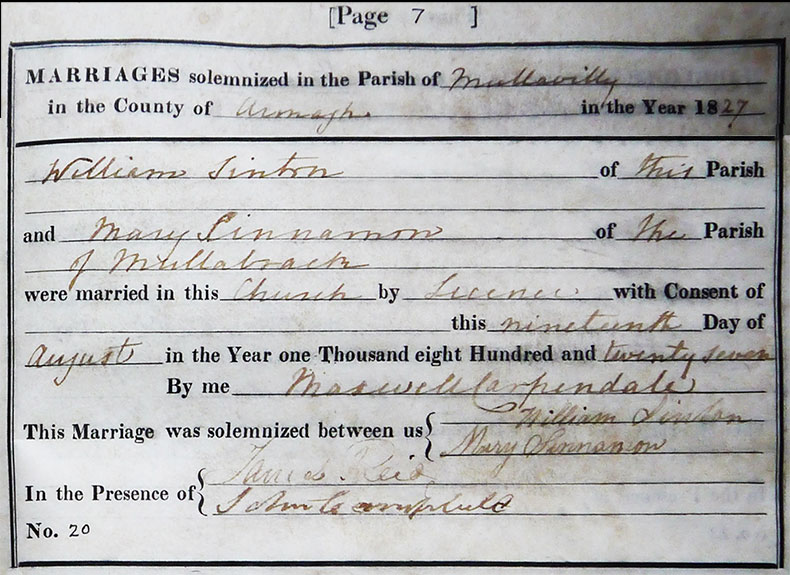 [Page 7 ]
MARRIAGES solemnized in the Parish of Mullavilly
in the County of Armagh. in the Year 1827
William Sinton of this Parish
and Mary Sinnamon of the Parish
of Mullabrack
were married in this Church by Licence with Consent of
this nineteenth Day of
August in the Year one Thousand eight Hundred and twenty seven
By me Maxwell Carpendale
William Sinton
This Marriage was solemnized between us
Mary Sinnamon
James Reid
In the Presence of
John Campbell
No. 20